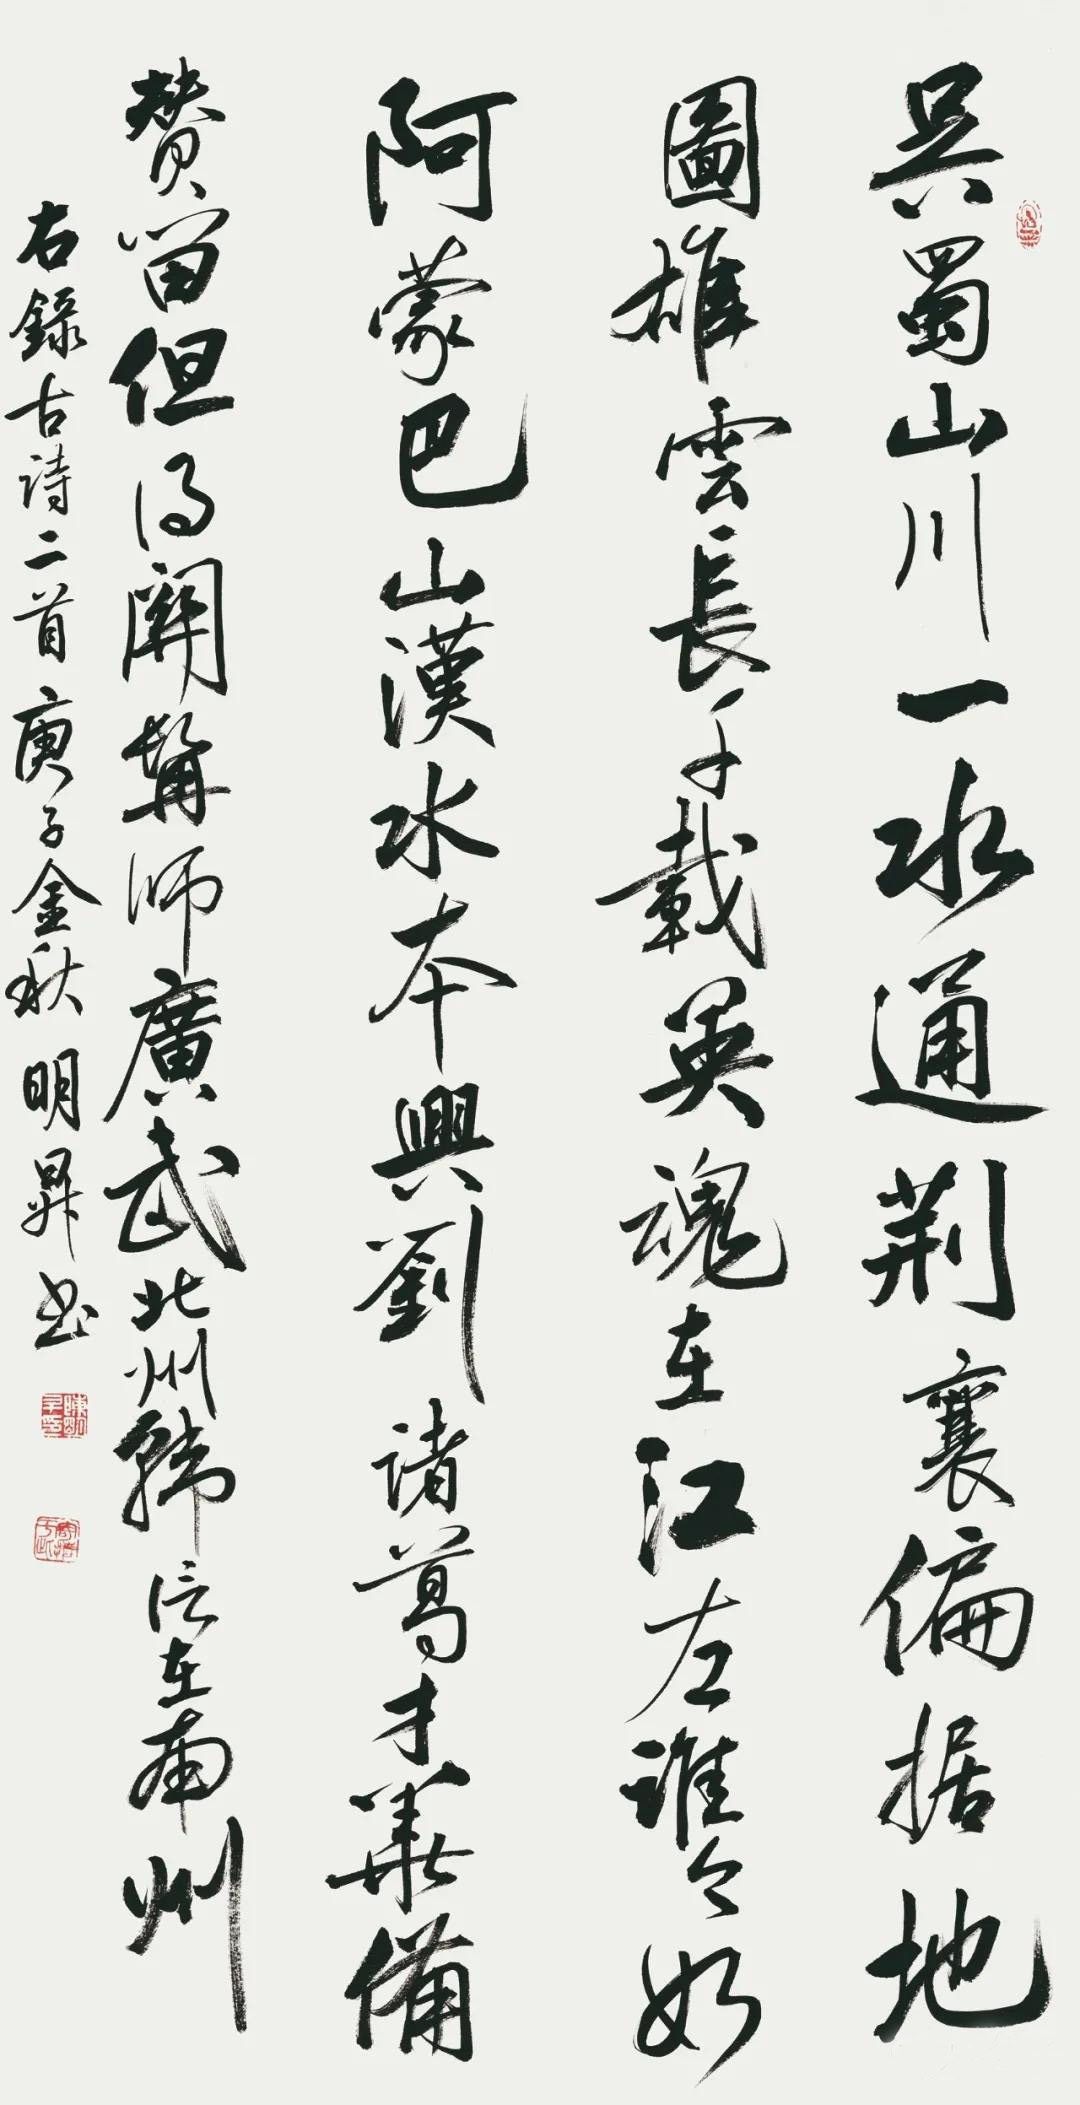 吳蜀山川一水通荆襄偏据地
圖雄雲長千載英魂在江左誰今
阿蒙巴山漢水本興劉諸葛才華備
贊留但得關幫師廣武北州韓信在南州
右錄古詩二首庚子金秋明昇书